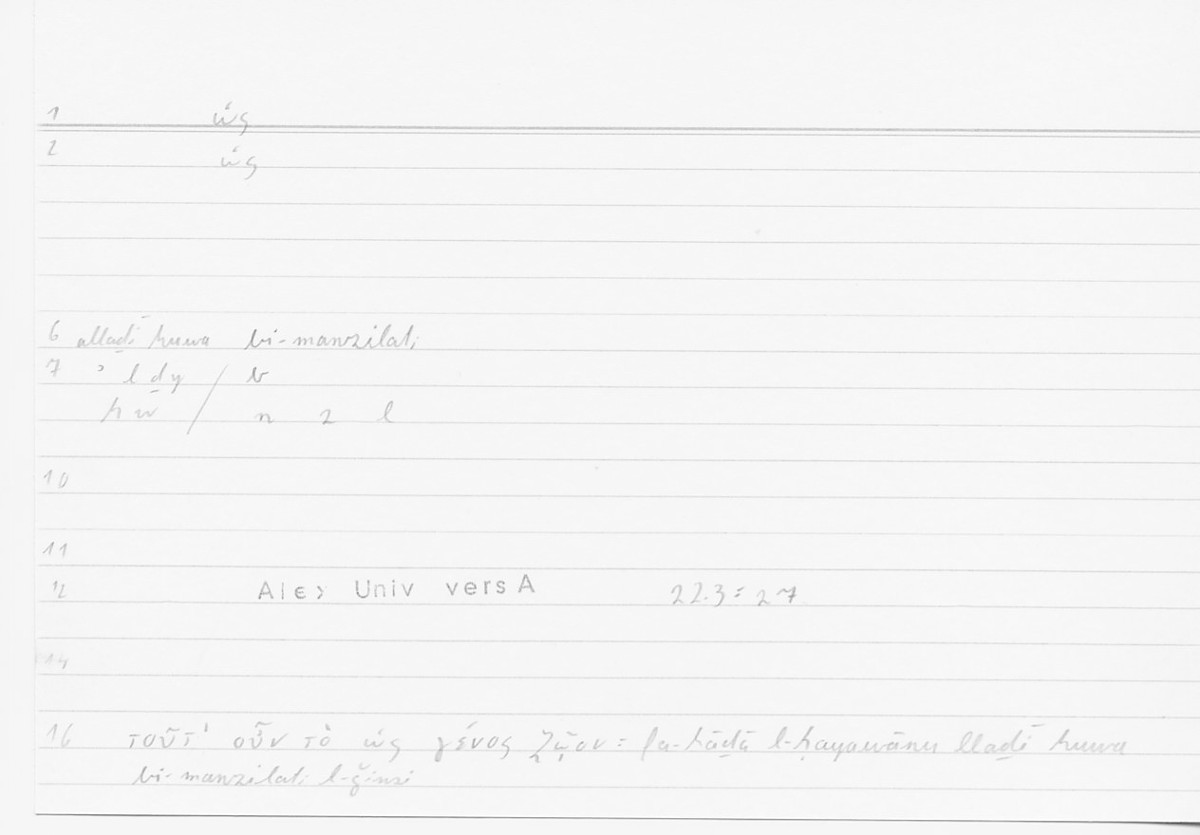 1 ὡς
2 ὡς
6 allaḏī huwa bi-manzilati
7 ʾ l ḏ y / b
h w / n z l
10
11
12 Alex Univ vers A 22.3 = 27
14
16 τοῦτ' οὖν τὸ ὡς γένος ζῷον = fa-hāḏā l-ḥayawānu llaḏī huwa
bi-manzilati l-ǧinsi